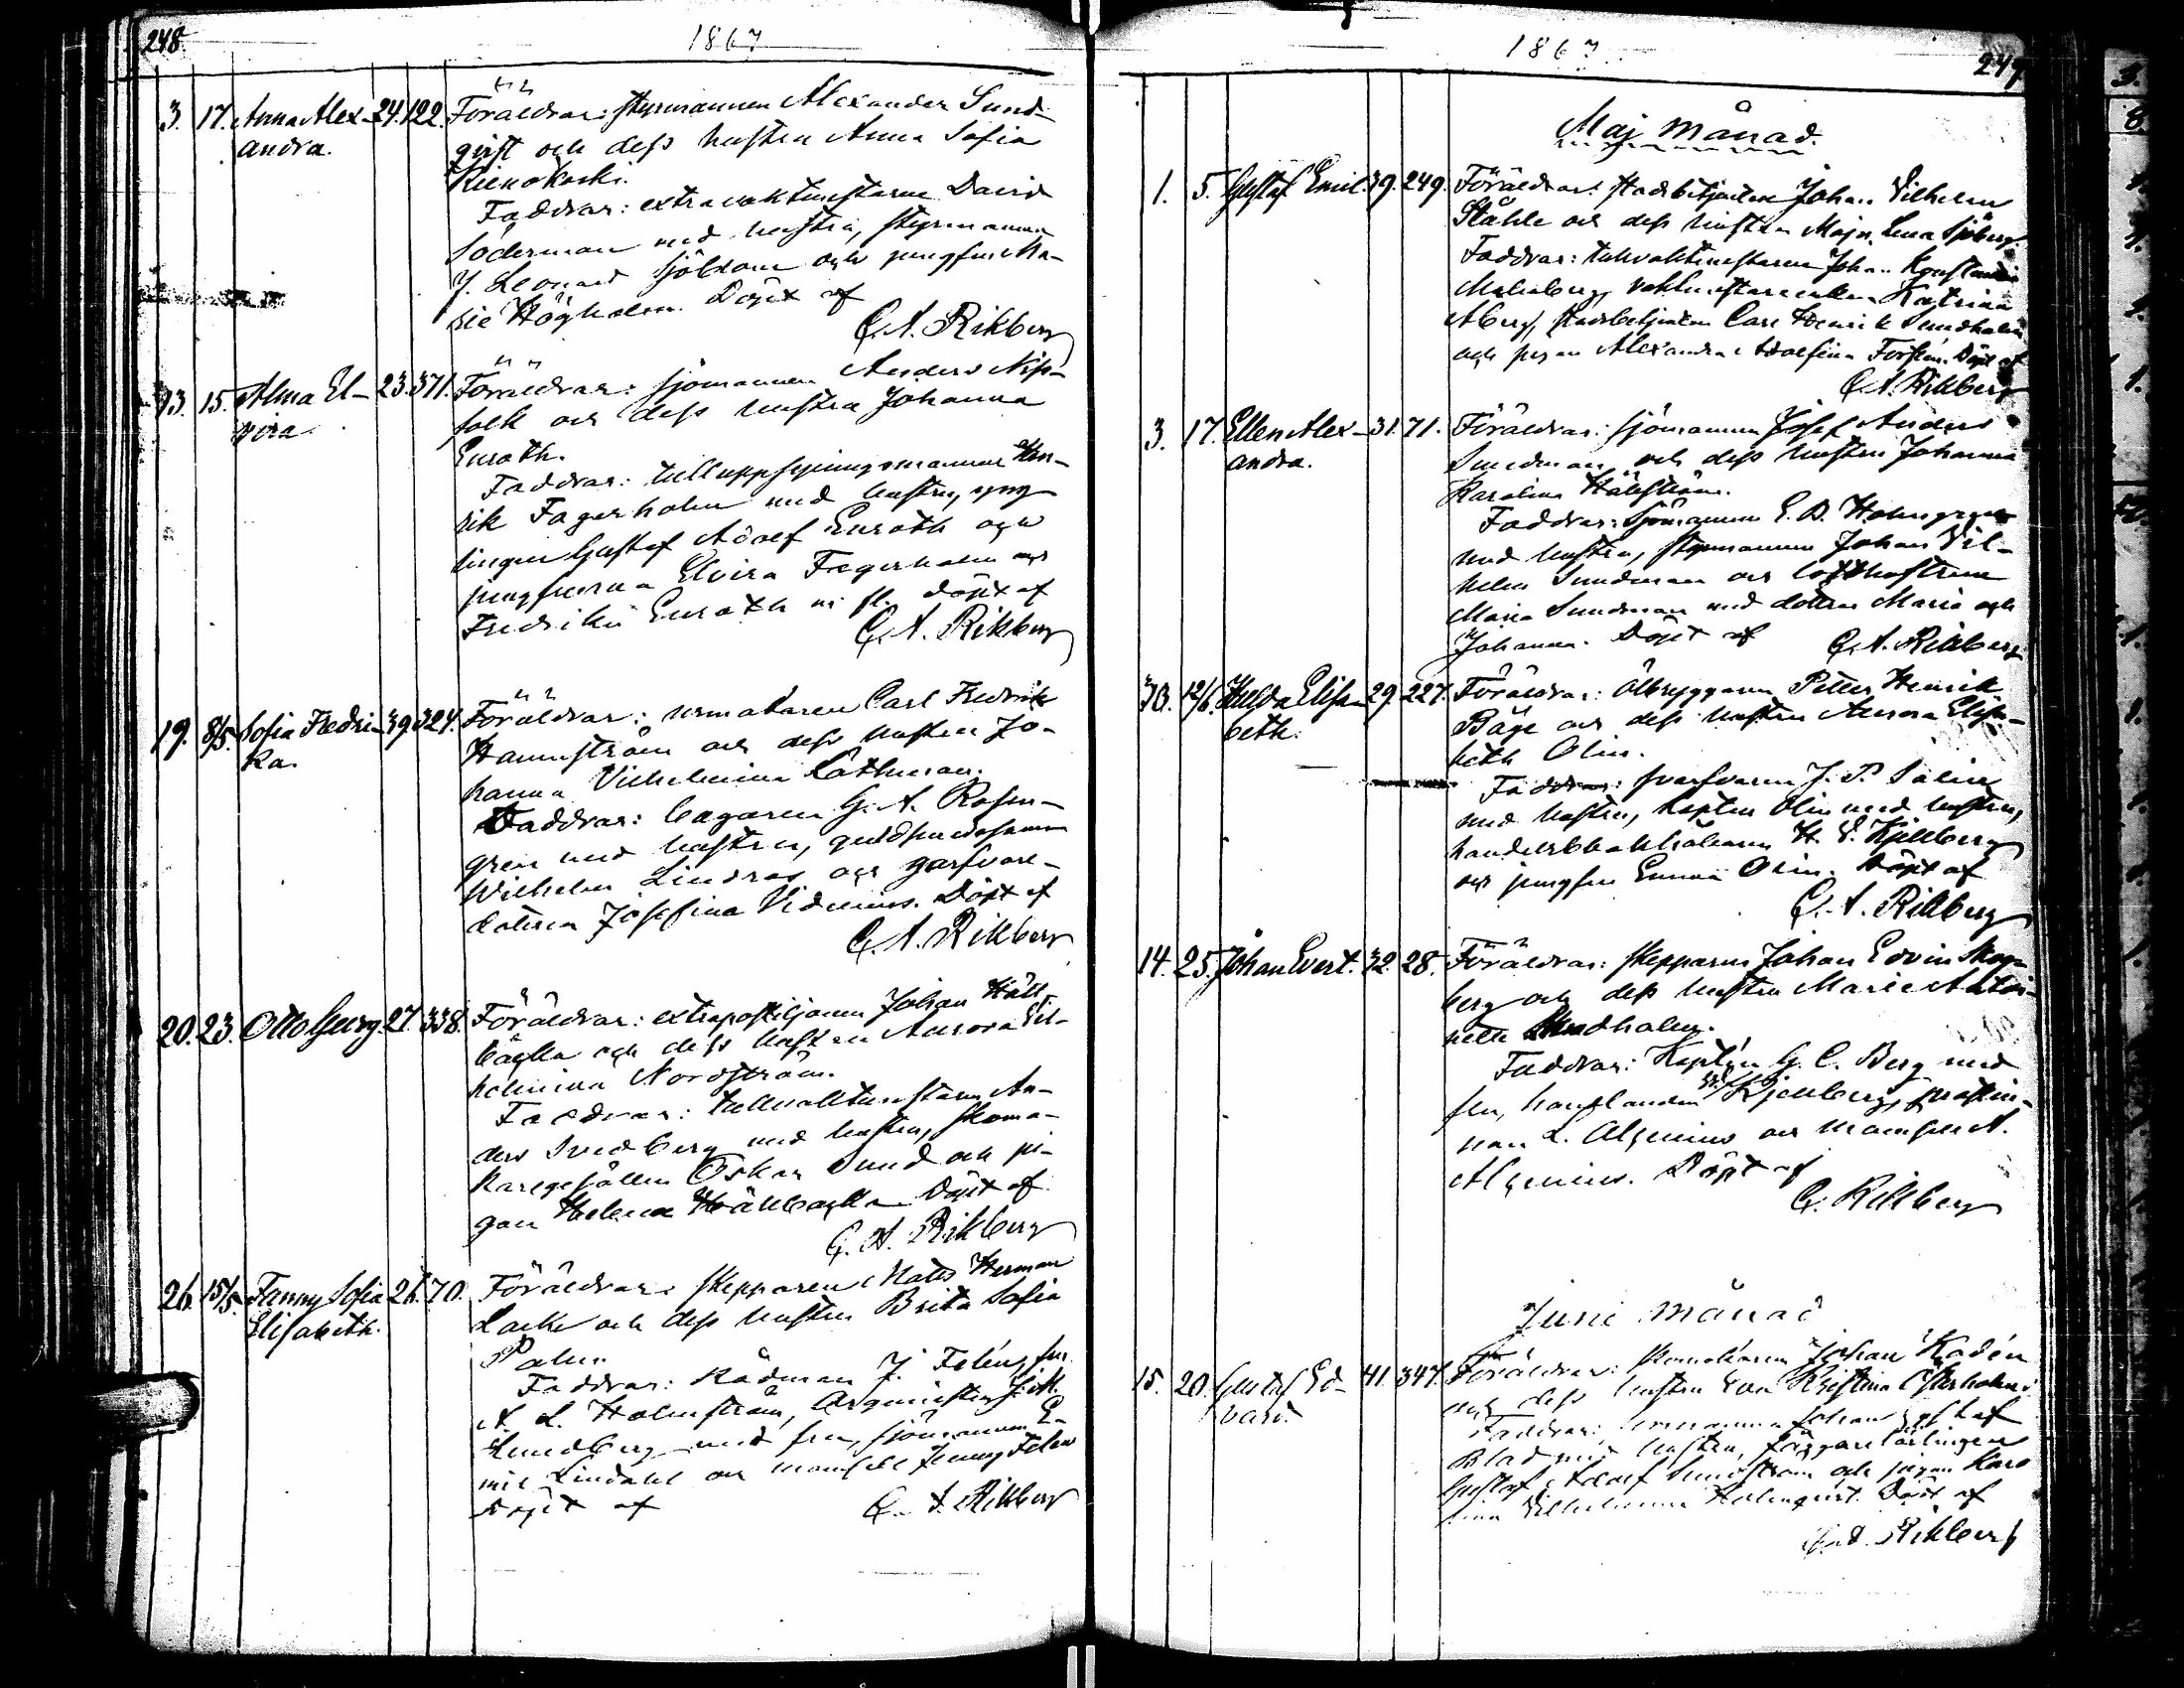 248.
1867
3. 17. Anna Alex- 24. 122. Föräldrar: styrmannen Alexander Sund-
andra. qvist och dess hustru Anna Sofia
Kienokoski.
Faddrar: extravaktmästaren David
Söderman med hustru, styrmannen
J. Leonard Sjöblom och jungfru Ma-
rie Högholm. Döpt af
C. A. Rikberg
13. 15. Alma El- 23. 371. Föräldrar: sjömannen Anders
vira. och dess hustru Johanna
Enroth.
Faddrar: tulluppsyningsmannen Hen-
rik Fagerholm med hustru, yng-
lingen Gustaf Adolf Enroth och
jungfrurna Elvira Fagerholm och
Fredrika Enroth m. fl. Döpt af
C. A. Rikberg
19. 8/5. Sofia Fredri- 39. 324. Föräldrar: urmakaren Carl Fredrik
ka. Hammström och dess hustru Jo-
hanna Vilhelmina Råthman.
Faddrar: bagaren G. A. Rosen-
gren med hustru, guldsmedsmannen
Wilhelm Lindros och garfvare-
dottren Josefina Videnius. Döpt af
C. A. Rikberg
20. 23. Otto Georg. 27. 338. Föräldrar: extrapostiljonen Johan Håll-
backa och dess hustru Aurora Vil-
helmina Nordström.
Faddrar: tullvaktmästaren An-
ders Svedberg med hustru, skoma-
karegesällen Oskar Sund och pi-
gan Helena Hållbacka. Döpt af
C. A. Rikberg
26. 15/5. Fanny Sofia 26. 70. Föräldrar: skepparen Mats Herman
Elisabeth. Lacke och dess hustru Brita Sofia
Palm.
Faddrar: Rådman J. Felén, fru
A. L. Holmström, Orgmästern J. M.
Lundberg med fru, sjömannen E-
mil Lindahl och mamsell Jenny Felen
Döpt af C. A. Rikberg
1867.
249.
Maj månad.
1. 5. Gustaf Emil. 39. 249. Föräldrar: stadsbetjenten Johan Vilhelm
Ståhle och dess hustru Maja Lena Sjöberg.
Faddrar: tullvaktmästaren Johan Konstantin
Malmberg, vaktmästareenkan Katrina
Åberg, stadsbetjenten Carl Henrik Sundholm
och pigan Alexandra Adolfina Forsten. Döpt af
C. A. Rikberg
3. 17. Ellen Alex- 31. 71. Föräldrar: sjömannen Josef Anders
andra. Sundman och dess hustru Johanna
Karolina Hällström.
Faddrar: Sjömannen E. D. Holmgren
med hustru, styrmannen Johan Vil-
helm Sundman och lotshustrun
Maria Sundman med dottren Maria och
Johanna. Döpt af C. A. Rikberg
30. 12/6. Hulda Elisa- 29. 227. Föräldrar: ölbryggaren Petter Henrik
beth. Båge och dess hustru Aurora Elisa-
beth Olin.
Faddrar: svarfvaren J. P. Salin
med hustru, kapten Olin med hustru,
handelsbokhållaren H. V. Kjellberg
och jungfru Emma Olin. Döpt af
C. A. Rikberg
14. 25. Johan Evert. 32. 28. Föräldrar: skepparen Johan Edvin Skog-
berg och dess hustru Maria Antoi-
nette Lindholm.
Faddrar: Kapten G. C. Berg med
fru, handlanden Kjellberg,
L. Algenius och mamsell A.
Algenius. Döpt af
C. Rikberg
Juni månad
15. 20. Gustaf Ed- 41. 347. Föräldrar: skomakaren Johan Kadén
vard. och dess hustru Eva Kristina Österholm.
Faddrar: Johan Gustaf
Blad med hustru, färgarelärlingen
Gustaf Adolf Sundström och pigan Karo
lina Vilhelmina Holmqvist. Döpt af
C. A. Rikberg